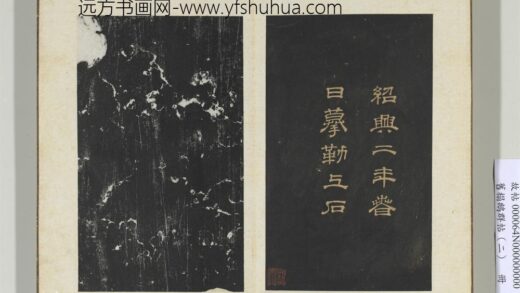 远方书画网-www.yfshuhua.com
紹興二年春
日摹勒上石
故帖 000064N000000000
舊搨 帖（二） 冊